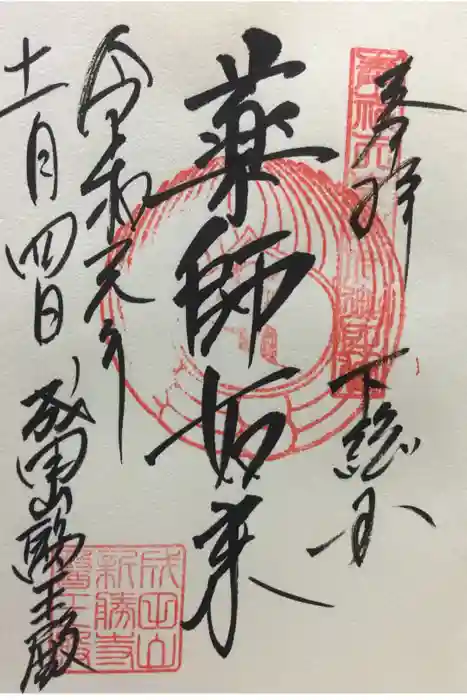 奉拝
下総国
薬師如来
令和元年
十一月四日
成田山醫王殿
成田山
新勝寺
醫王殿